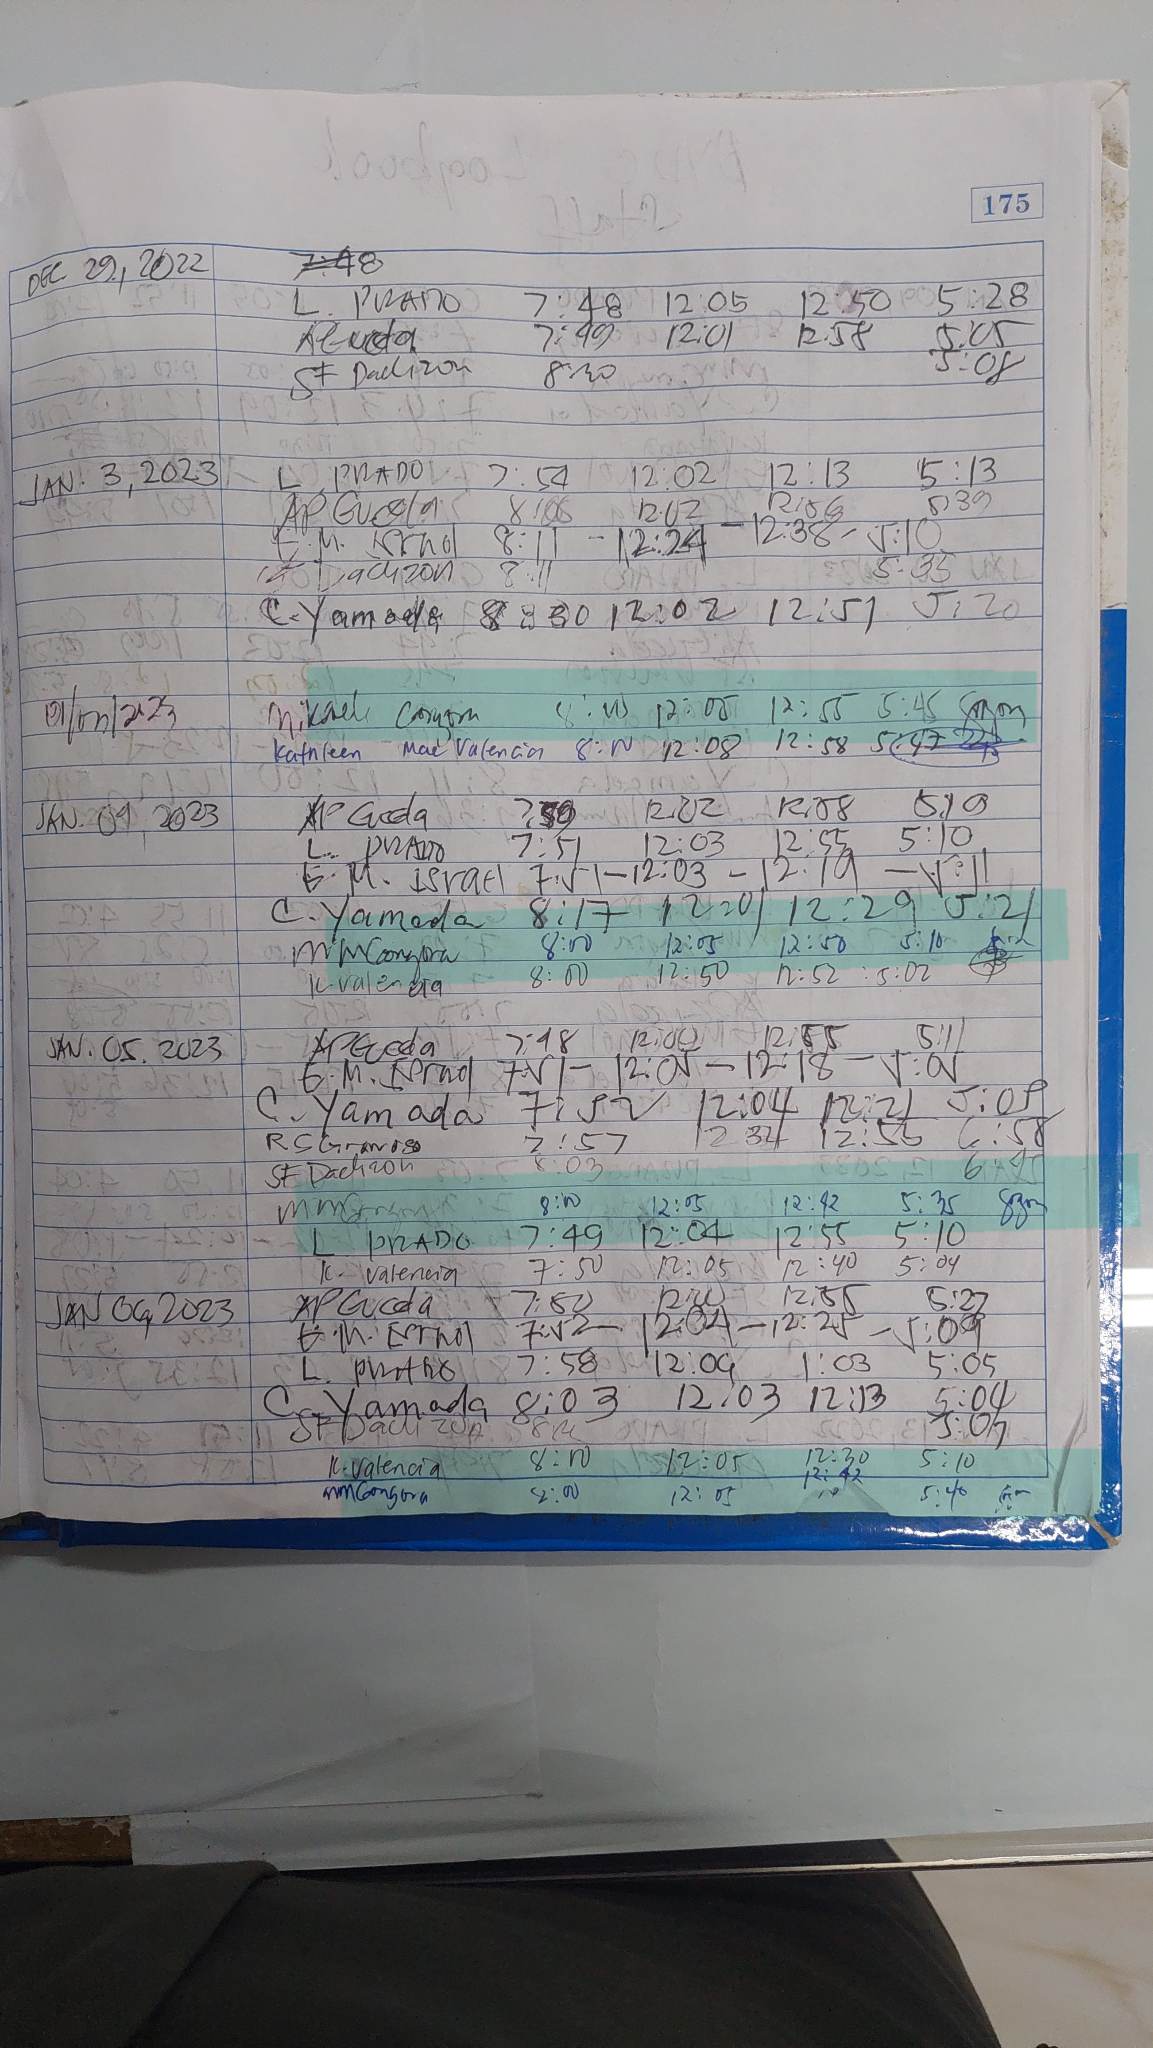 175
DEC 29, 2022 7:48
L. PRADO 7:48 12:05 12:50 5:28
APGueda 7:49 12:01 12:58 5:05
SF Dachzon 8:30 5:08
JAN. 3, 2023 L. PRADO 7:54 12:02 12:13 5:13
APGueda 8:08 12:02 12:56 5:39
E.M. Israel 8:11 - 12:24 - 12:38 - 5:10
SF Dachzon 8:11 5:33
C. Yamada 8:30 12:02 12:51 5:20
Mikaela Congora 8:00 12:05 12:55 5:45
Kathleen Mae Valencia 8:00 12:08 12:58 5:47
JAN. 04, 2023 APGueda 7:59 12:02 12:58 5:19
L. PRADO 7:51 12:03 12:55 5:10
E.M. Israel 7:51 - 12:03 - 12:19 - 5:11
C. Yamada 8:17 12:20 12:29 5:21
MMGongora 8:00 12:05 12:50 5:10
K. Valencia 8:00 12:50 12:52 5:02
JAN. 05. 2023 APGueda 7:48 12:00 12:55 5:11
E.M. Israel 7:51 - 12:05 - 12:18 - 5:05
C. Yamada 7:52 12:04 12:21 5:05
7:57 12:32 12:55 6:58
SF Dachzon 8:03 6:45
MMGongora 8:00 12:05 12:42 5:35
L. PRADO 7:49 12:04 12:55 5:10
K. Valencia 7:50 12:05 12:40 5:04
JAN 06, 2023 APGueda 7:50 12:00 12:55 5:27
E.M. Israel 7:52 - 12:04 - 12:25 - 5:09
L. PRADO 7:58 12:09 1:03 5:05
C. Yamada 8:03 12:03 12:13 5:04
SF Dachzon 5:07
K. Valencia 8:00 12:05 12:30 5:10
MMGongora 8:00 12:05 12:42 5:40